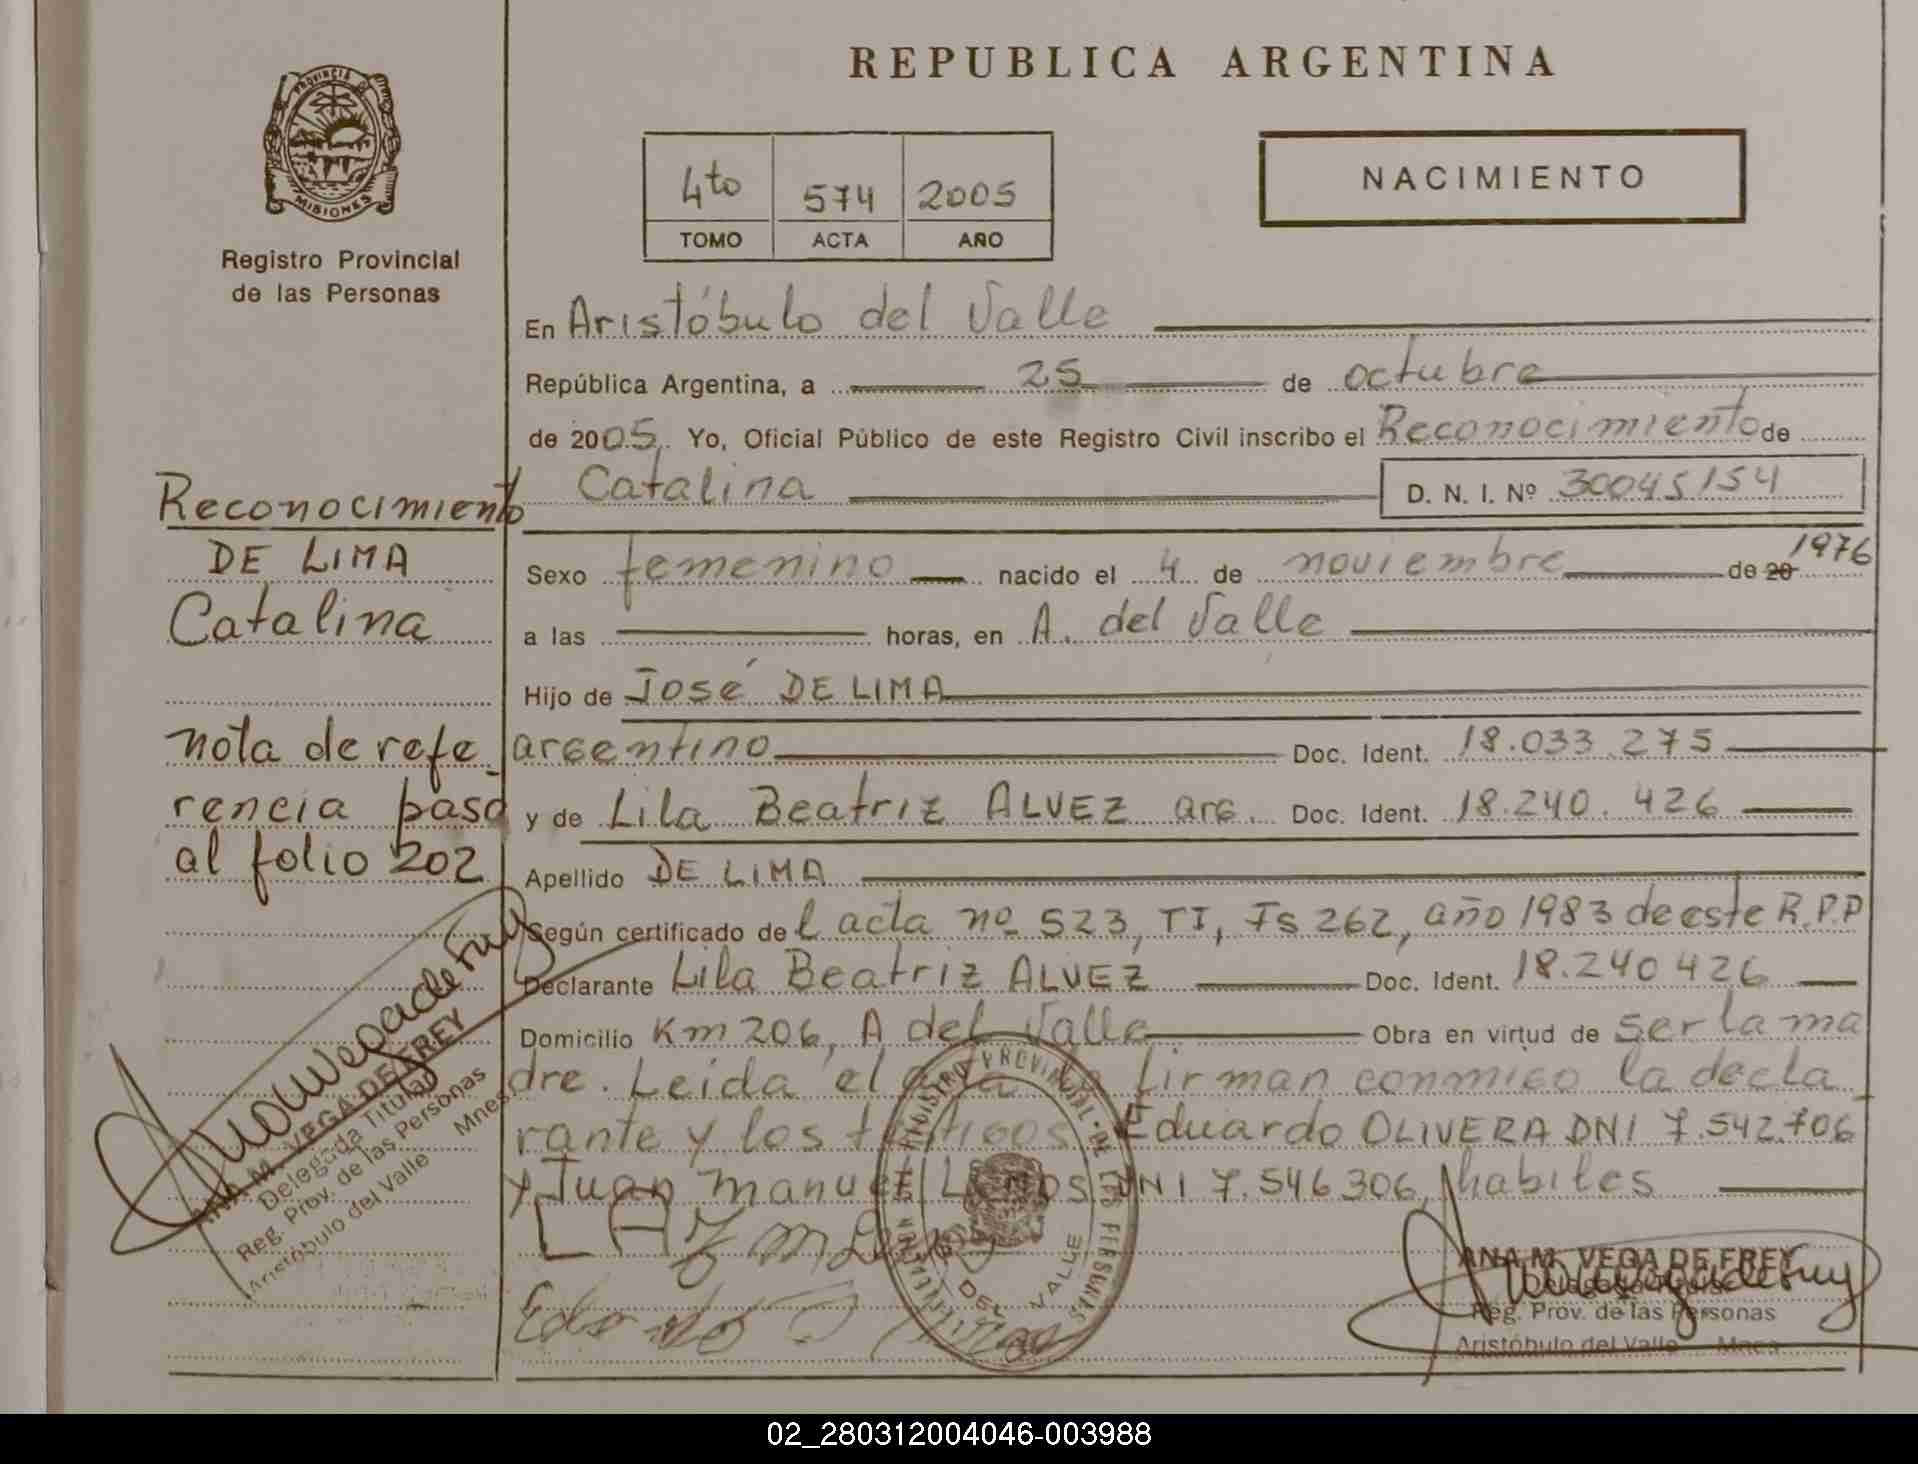 REPUBLICA ARGENTINA
PROVINCIA DE
MISIONES
Registro Provincial
de las Personas
4to 574 2005
TOMO ACTA AÑO
NACIMIENTO
En Aristóbulo del Valle
República Argentina, a 25 de octubre
de 2005. Yo, Oficial Público de este Registro Civil inscribo el Reconocimiento de
Catalina D. N. I. Nº 30045154
Sexo femenino nacido el 4 de noviembre de 20 1976
a las horas, en A. del Valle
Hijo de José DE LIMA
argentino Doc. Ident. 18.033.275
y de Lila Beatriz ALVEZ arg. Doc. Ident. 18.240.426
Apellido DE LIMA
Según certificado del acta nº 523, TI, Fs 262, año 1983 de este R.P.P
Declarante Lila Beatriz ALVEZ Doc. Ident. 18.240426
Domicilio Km 206, A del Valle Obra en virtud de ser la ma
dre. Leída el acta la firman conmigo la decla_
rante y los testigos Eduardo OLIVERA DNI 7.542.706
y Juan Manuel DNI 7.546306, habiles
Reconocimiento
DE LIMA
Catalina
nota de refe_
rencia pasa
al folio 202
ANA M. VEGA DE FREY
Delegada Titular
Reg. Prov. de las Personas
Aristóbulo del Valle Mnes.
REGISTRO PROVINCIAL DE LAS PERSONAS
DEL VALLE
ANA M. VEGA DE FREY
Delegada Titular
Reg. Prov. de las Personas
Aristóbulo del Valle Mnes
02_280312004046-003988